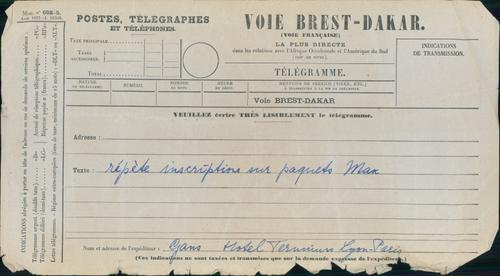 Mod. nº 698-5.
POSTES, TÉLÉGRAPHES
ET TÉLÉPHONES.
TAXE PRINCIPALE
TAXES
ACCESSOIRES.
TOTAL
VOIE BREST-DAKAR.
(VOIE FRANÇAISE)
LA PLUS DIRECTE
dans les relations avec l'Afrique Occidentale et l'Amérique du Sud
(VOIR AU VERSO)
TÉLÉGRAMME.
INDICATIONS
DE TRANSMISSION.
NATURE
DU TÉLÉGRAMME.
NUMÉRO.
NOMBRE
DE MOTS.
HEURE
DE DÉPÔT.
MENTIONS DE SERVICE (VOIES, ETC.)
Voie BREST-DAKAR
VEUILLEZ écrire TRÈS LISIBLEMENT le télégramme.
Adresse :
Texte : répète inscriptions sur paquets Max
Nom et adresse de l'expéditeur : Gans Hotel Terminus Lyon-Paris
(Ces indications ne sont taxées et transmises que sur la demande expresse de l'expéditeur.)